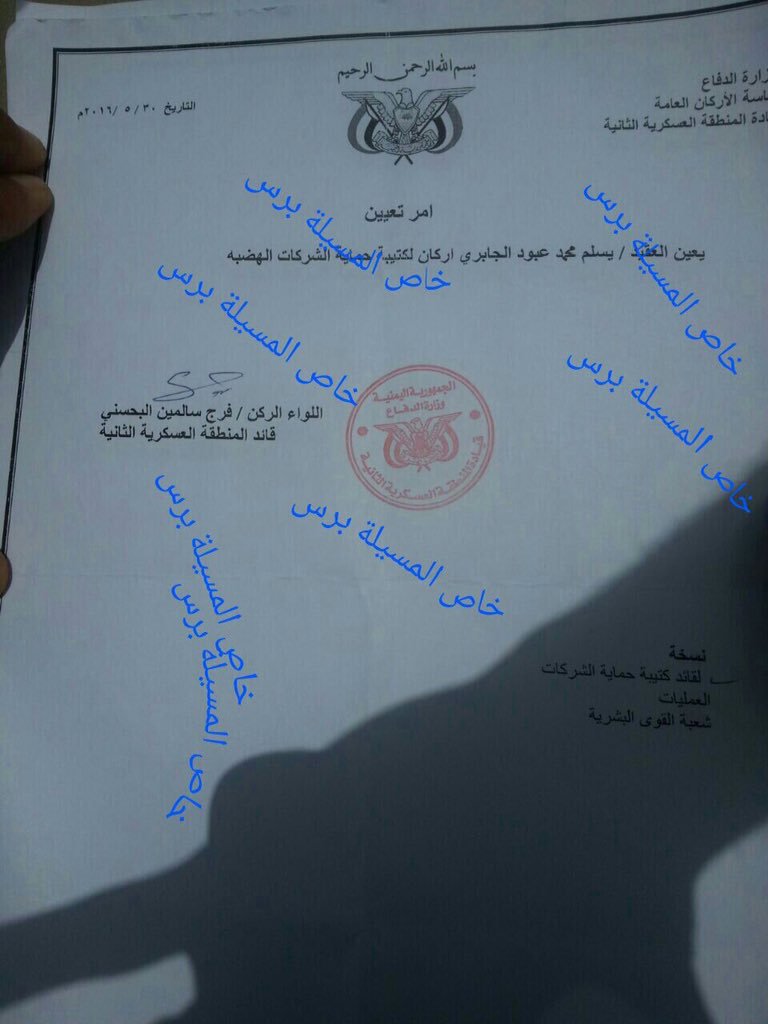 بسم الله الرحمن الرحيم
زارة الدفاع
اسة الأركان العامة
ادة المنطقة العسكرية الثانية
التاريخ ٣٠ / ٥ /٢٠١٦م
امر تعيين
يعين العقيد / يسلم محمد عبود الجابري اركان لكتيبة حماية الشركات الهضبه
اللواء الركن / فرج سالمين البحسني
قائد المنطقة العسكرية الثانية
الجمهورية اليمنية
وزارة الدفاع
قيادة المنطقة العسكرية الثانية
نسخة
لقائد كتيبة حماية الشركات
العمليات
شعبة القوى البشرية
خاص المسيلة برس
خاص المسيلة برس
خاص المسيلة برس
خاص المسيلة برس
خاص المسيلة برس
خاص المسيلة برس
خاص المسيلة برس